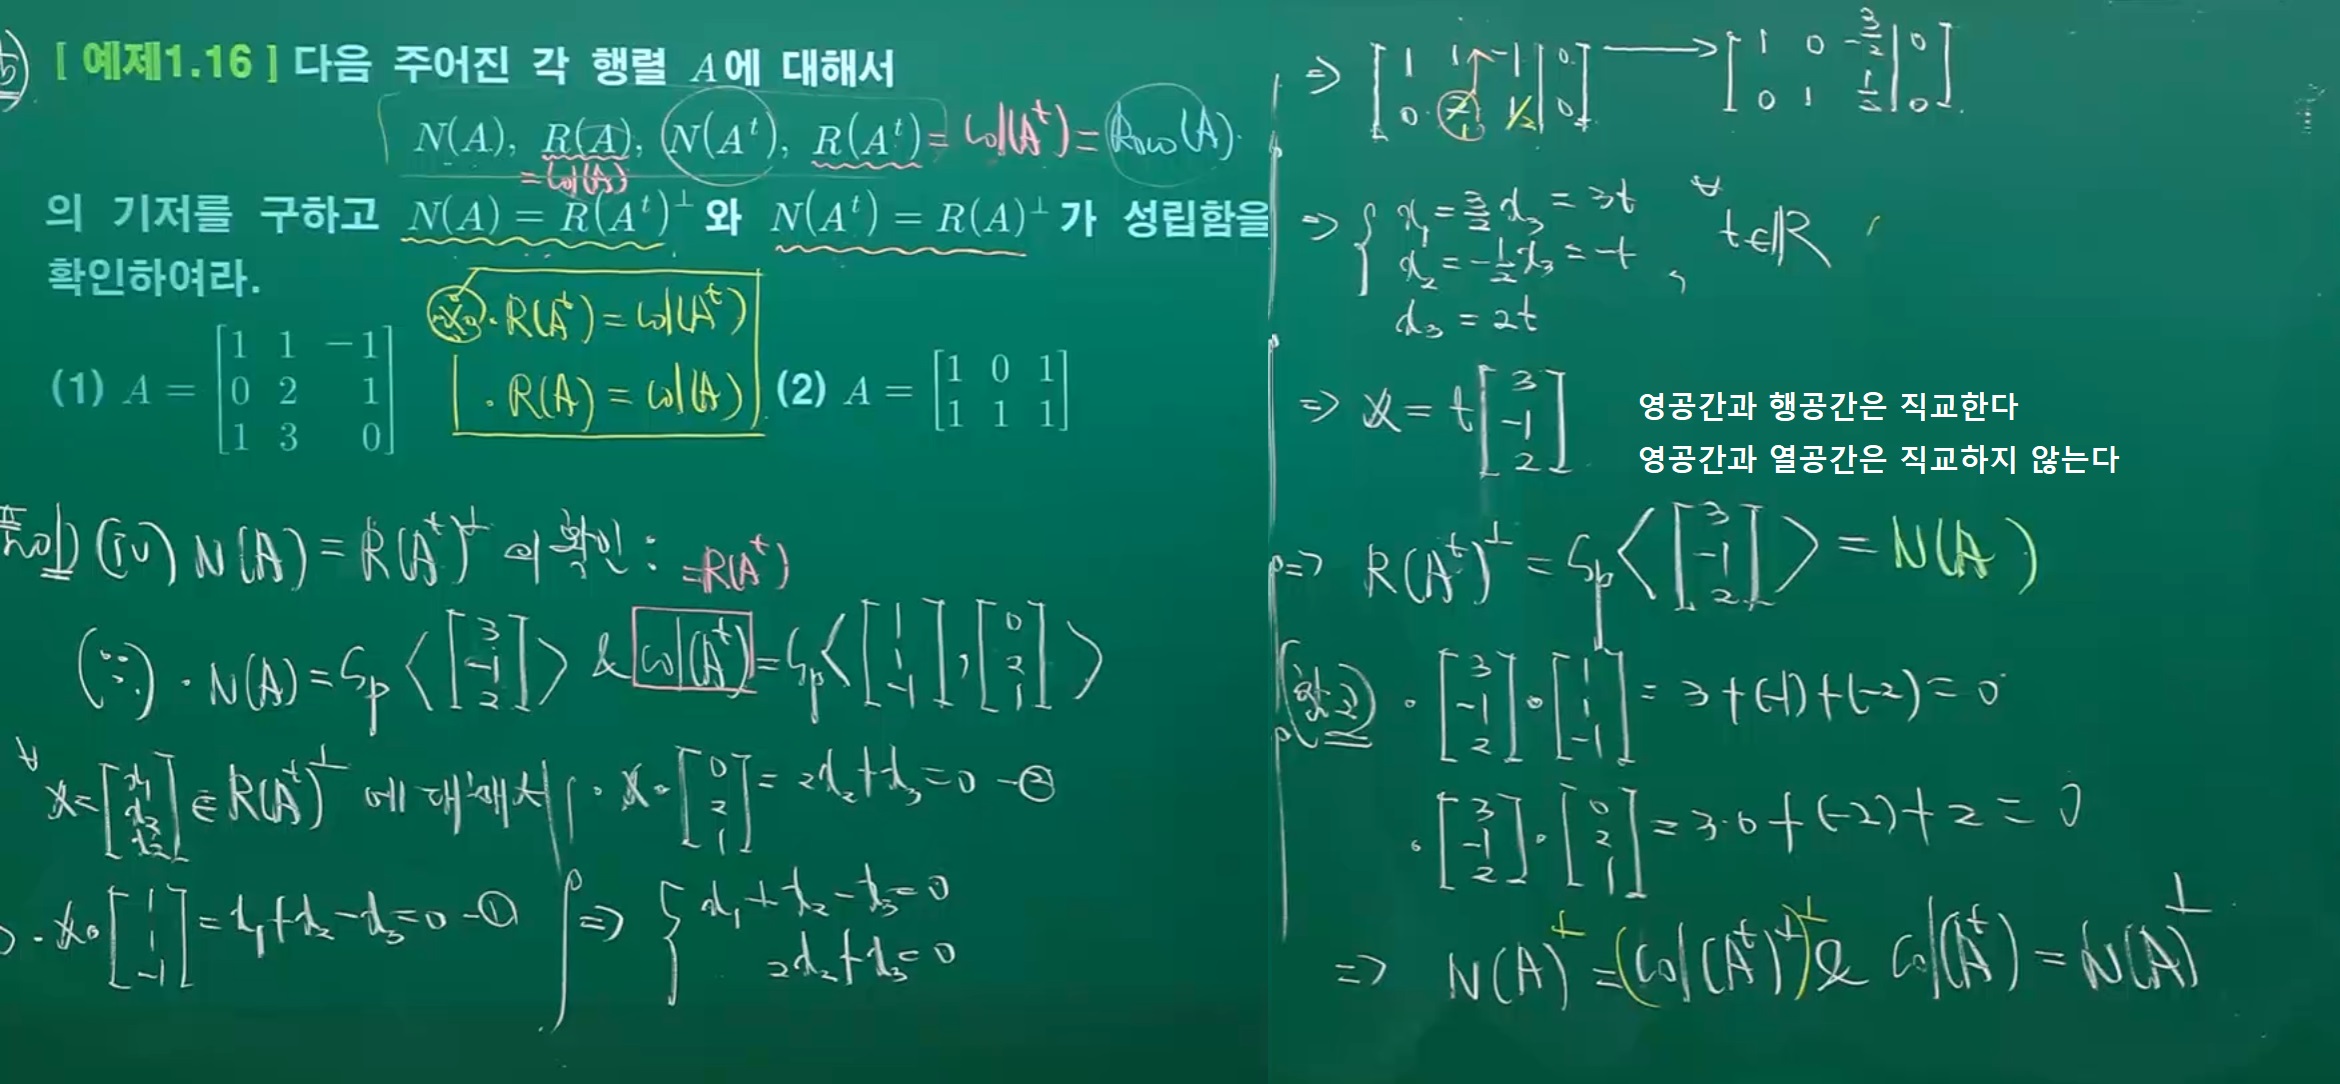 [ 예제1.16 ] 다음 주어진 각 행렬 A에 대해서
N(A), R(A), N(Aᵗ), R(Aᵗ) = Col(Aᵗ) = Row(A).
= Col(A)
의 기저를 구하고 N(A) = R(Aᵗ)⊥ 와 N(Aᵗ) = R(A)⊥ 가 성립함을
확인하여라.
· R(Aᵗ) = Col(Aᵗ)
· R(A) = Col(A)
(1) A = [1 1 -1
0 2 1
1 3 0]
(2) A = [1 0 1
1 1 1]
풀이) (iv) N(A) = R(Aᵗ)⊥ 의 확인 :
= R(Aᵗ)
(∵) · N(A) = Sp〈[3 -1 2]〉 & Col(Aᵗ) = Sp〈[1 1 -1], [0 2 1]〉
∀x = [x₁ x₂ x₃] ∈ R(Aᵗ)⊥ 에 대해서
· x · [1 1 -1] = x₁ + x₂ - x₃ = 0 - ①
· x · [0 2 1] = 2x₂ + x₃ = 0 - ②
⇒ { x₁ + x₂ - x₃ = 0
2x₂ + x₃ = 0
⇒ [1 1 -1 | 0
0 2 1/2 | 0] → [1 0 -3/2 | 0
0 1 1/2 | 0]
⇒ { x₁ = 3/2 x₃ = 3t
x₂ = -1/2 x₃ = -t , ∀t∈ℝ
x₃ = 2t
⇒ x = t[3 -1 2]
영공간과 행공간은 직교한다
영공간과 열공간은 직교하지 않는다
⇒ R(Aᵗ)⊥ = Sp〈[3 -1 2]〉 = N(A)
· [3 -1 2] · [1 1 -1] = 3 + (-1) + (-2) = 0
· [3 -1 2] · [0 2 1] = 3·0 + (-2) + 2 = 0
⇒ N(A)⊥ = (Col(Aᵗ)⊥)⊥ & Col(Aᵗ) = N(A)⊥